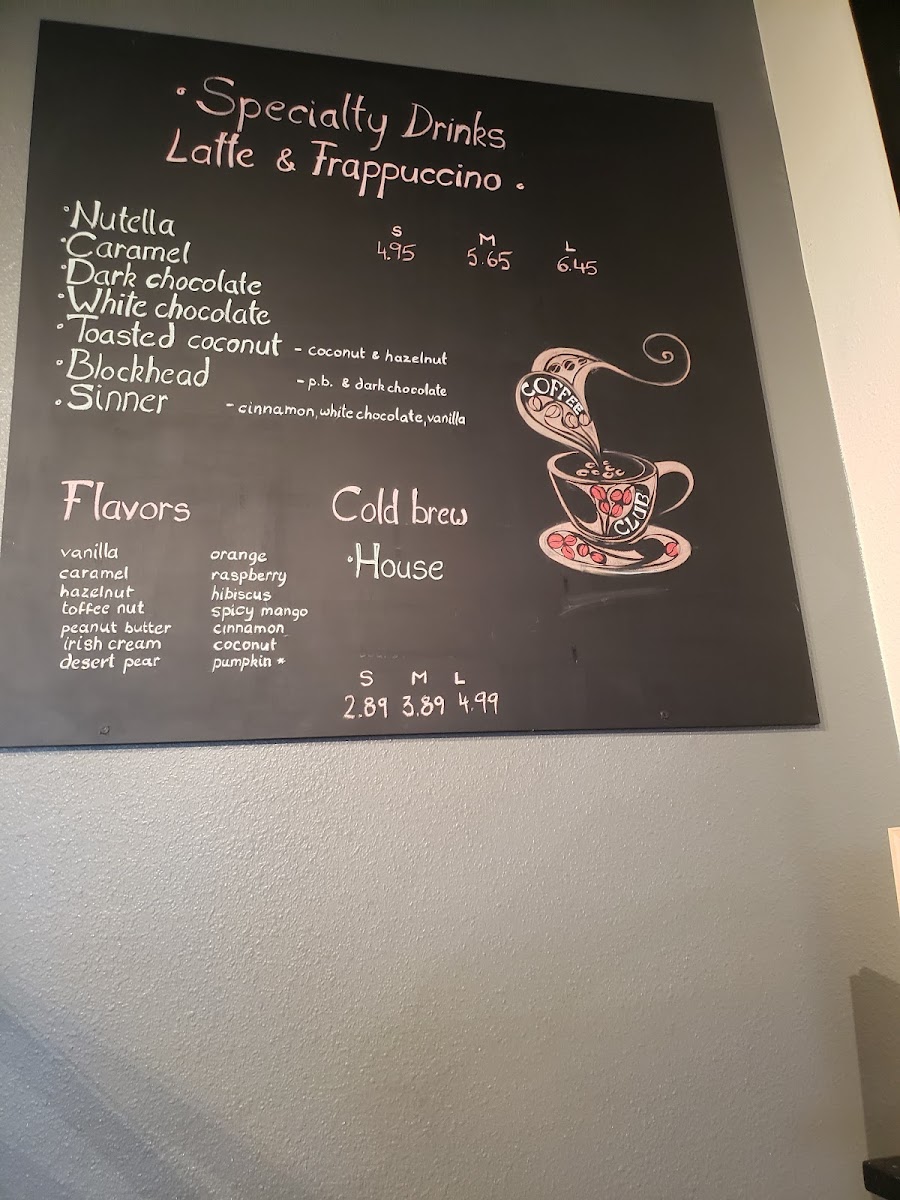 · Specialty Drinks
Latte & Frappuccino ·
S M L
4.95 5.65 6.45
·Nutella
·Caramel
·Dark chocolate
·White chocolate
·Toasted coconut - coconut & hazelnut
·Blockhead - p.b. & dark chocolate
·Sinner - cinnamon, white chocolate, vanilla
COFFEE
CLUB
Flavors
vanilla
caramel
hazelnut
toffee nut
peanut butter
irish cream
desert pear
orange
raspberry
hibiscus
spicy mango
cinnamon
coconut
pumpkin *
Cold brew
·House
S M L
2.89 3.89 4.99